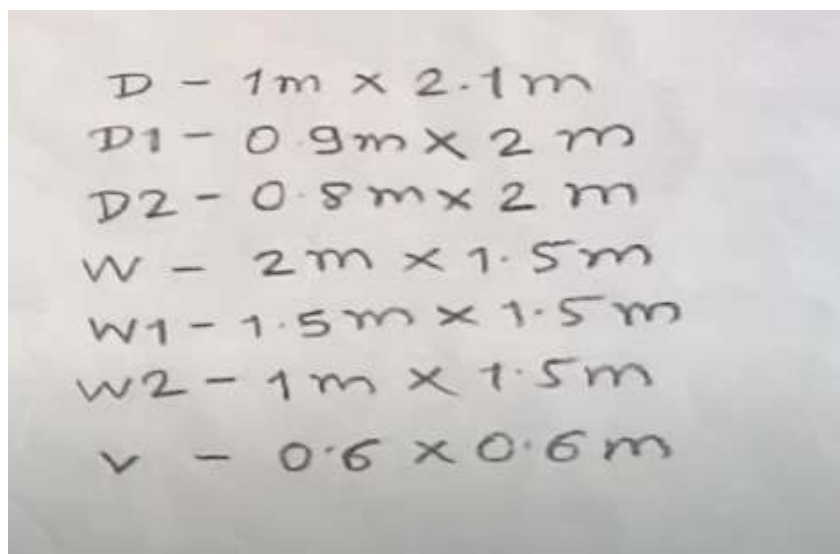 D - 1m x 2.1m
D1 - 0.9m x 2 m
D2 - 0.8m x 2 m
W - 2m x 1.5m
W1 - 1.5m x 1.5m
W2 - 1m x 1.5m
V - 0.6 x 0.6m